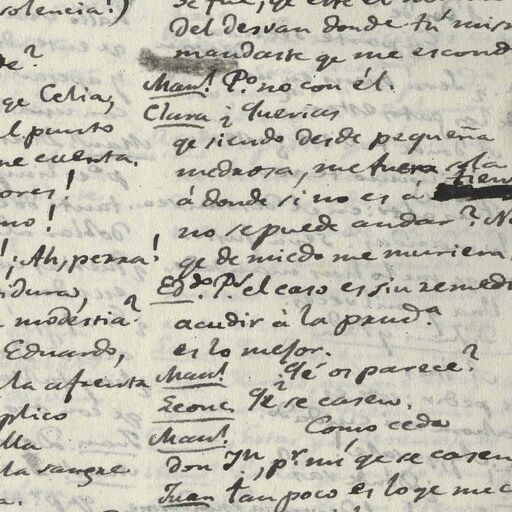 solencia!)
de?
qe Celia,
l punto
me cuenta.
ores!
no!
!¡Ah, perra!
idura,
modestia?
Eduardo,
la afrenta
plico
lla
la sangre
a.
se fue, qe este el
del desvan donde tú mism
mandaste qe me escond
Manl. Po. no con él.
Clara ¿Querias
qe siendo desde pequeña
medrosa, me fuera sola
á donde si no es á tien
no se puede andar? No
qe de miedo me muriera
Edo. Ps. el caso es sin remedi
acudir á la pruda.
es lo mejor.
Manl. Qé os parece?
Leonc. Qe. se casen.
Manl. Como ceda
don Jn, pr. mí, qe se casen
Juan tampoco es lo qe me c